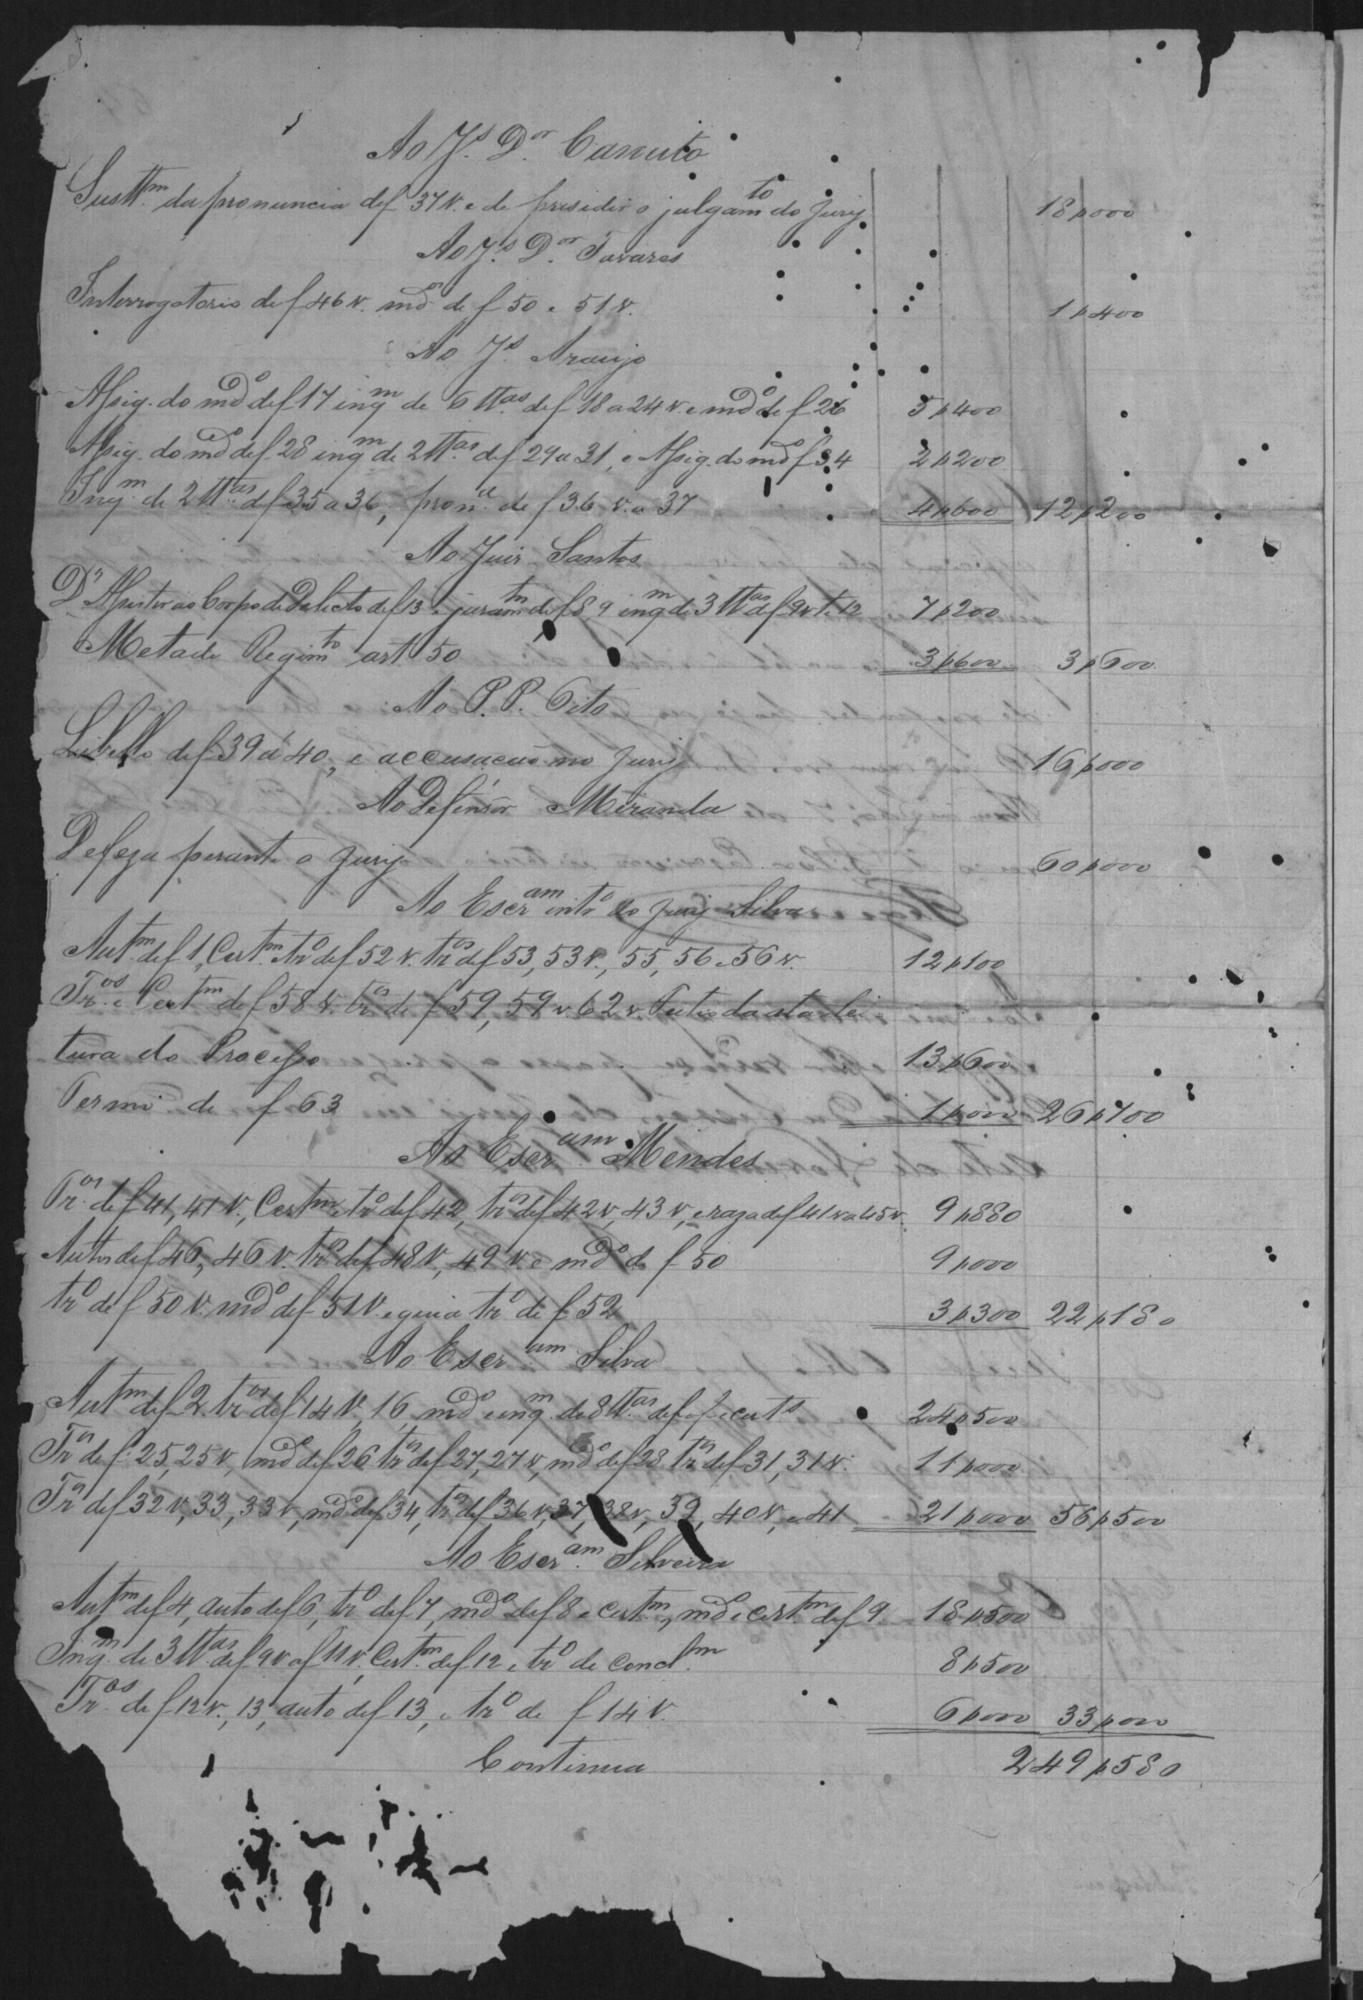 Ao Js. Dor Canuto
Susttm. da pronuncia de f 37 v. e de presidir o julgamto do Jury 18$000
Ao Js. Dor Tavares
Interrogatorio de f 46 v. mdo de f 50 e 51 v. 1$400
Ao Js. Araujo
Assig. do mdo de f 17 inqm de 6 ttas de f 18 a 24 v. e mdo de f 26 5$400
Assig. do mdo de f 28 inqm de 2 ttas de f 29 a 31, e Assig. do mdo f 34 2$200
Inqm de 2 ttas de f 35 a 36, pronca de f 36 v. a 37 4$600 12$200
Ao Juiz Santos
De Assistir ao Corpo de Delicto de f 13 e juramto de f 8, 9 inqm de 3 ttas de f 9 v te 12 7$200
Metade Regimto art 50 3$600 3$600
Ao P. P. Tito
Libello de f 39 a 40, e accusacão no Jury 16$000
Ao Defensor Miranda
Defeza perante o Jury 60$000
Ao Escram into do Jury Silva
Autm. de f 1, Certm. tro de f 52 v. tros de f 53, 53 v., 55, 56 e 56 v. 12$100
Tros e Certm de f 58 v. tros de f 59, 59 v 62 v
tura do Processo 13$600
Termi de f 63 1$000 26$700
Ao Escram Mendes
Tros de f 41, 41 v., Certm e tro de f 42, tros de f 42 v, 43 v, e raza de f 41 v a 45 v. 9$880
Autos de f 46, 46 v. tros de f 48 v, 49 v. e mdo de f 50 9$000
tro de f 50 v. mdo de f 51 v. e guia tro de f 52 3$300 22$180
Ao Escram Silva
Autm de f 2 tros de f 14 v, 16, mdo e inqm de 8 ttas de f e certs 24$500
Tros de f 25, 25 v, mdo de f 26 tros de f 27, 27 v, mdo de f 28 tros de f 31, 31 v. 11$000
Tros de f 32 v, 33, 33 v, mdo de f 34, tros de f 36 v, 37, 38 v, 39, 40 v, e 41 21$000 56$500
Ao Escram Silveira
Autm de f 4, auto de f 6, tro de f 7, mdo de f 8 e certm, mdo e certm de f 9. 18$500
Inqm de 3 ttas de f 9 v a f 11 v, Certm. de f 12 e tro de conclm 8$500
Tros de f 12 v., 13, auto de f 13, e tro de f 14 v. 6$000 33$000
Continua 249$580